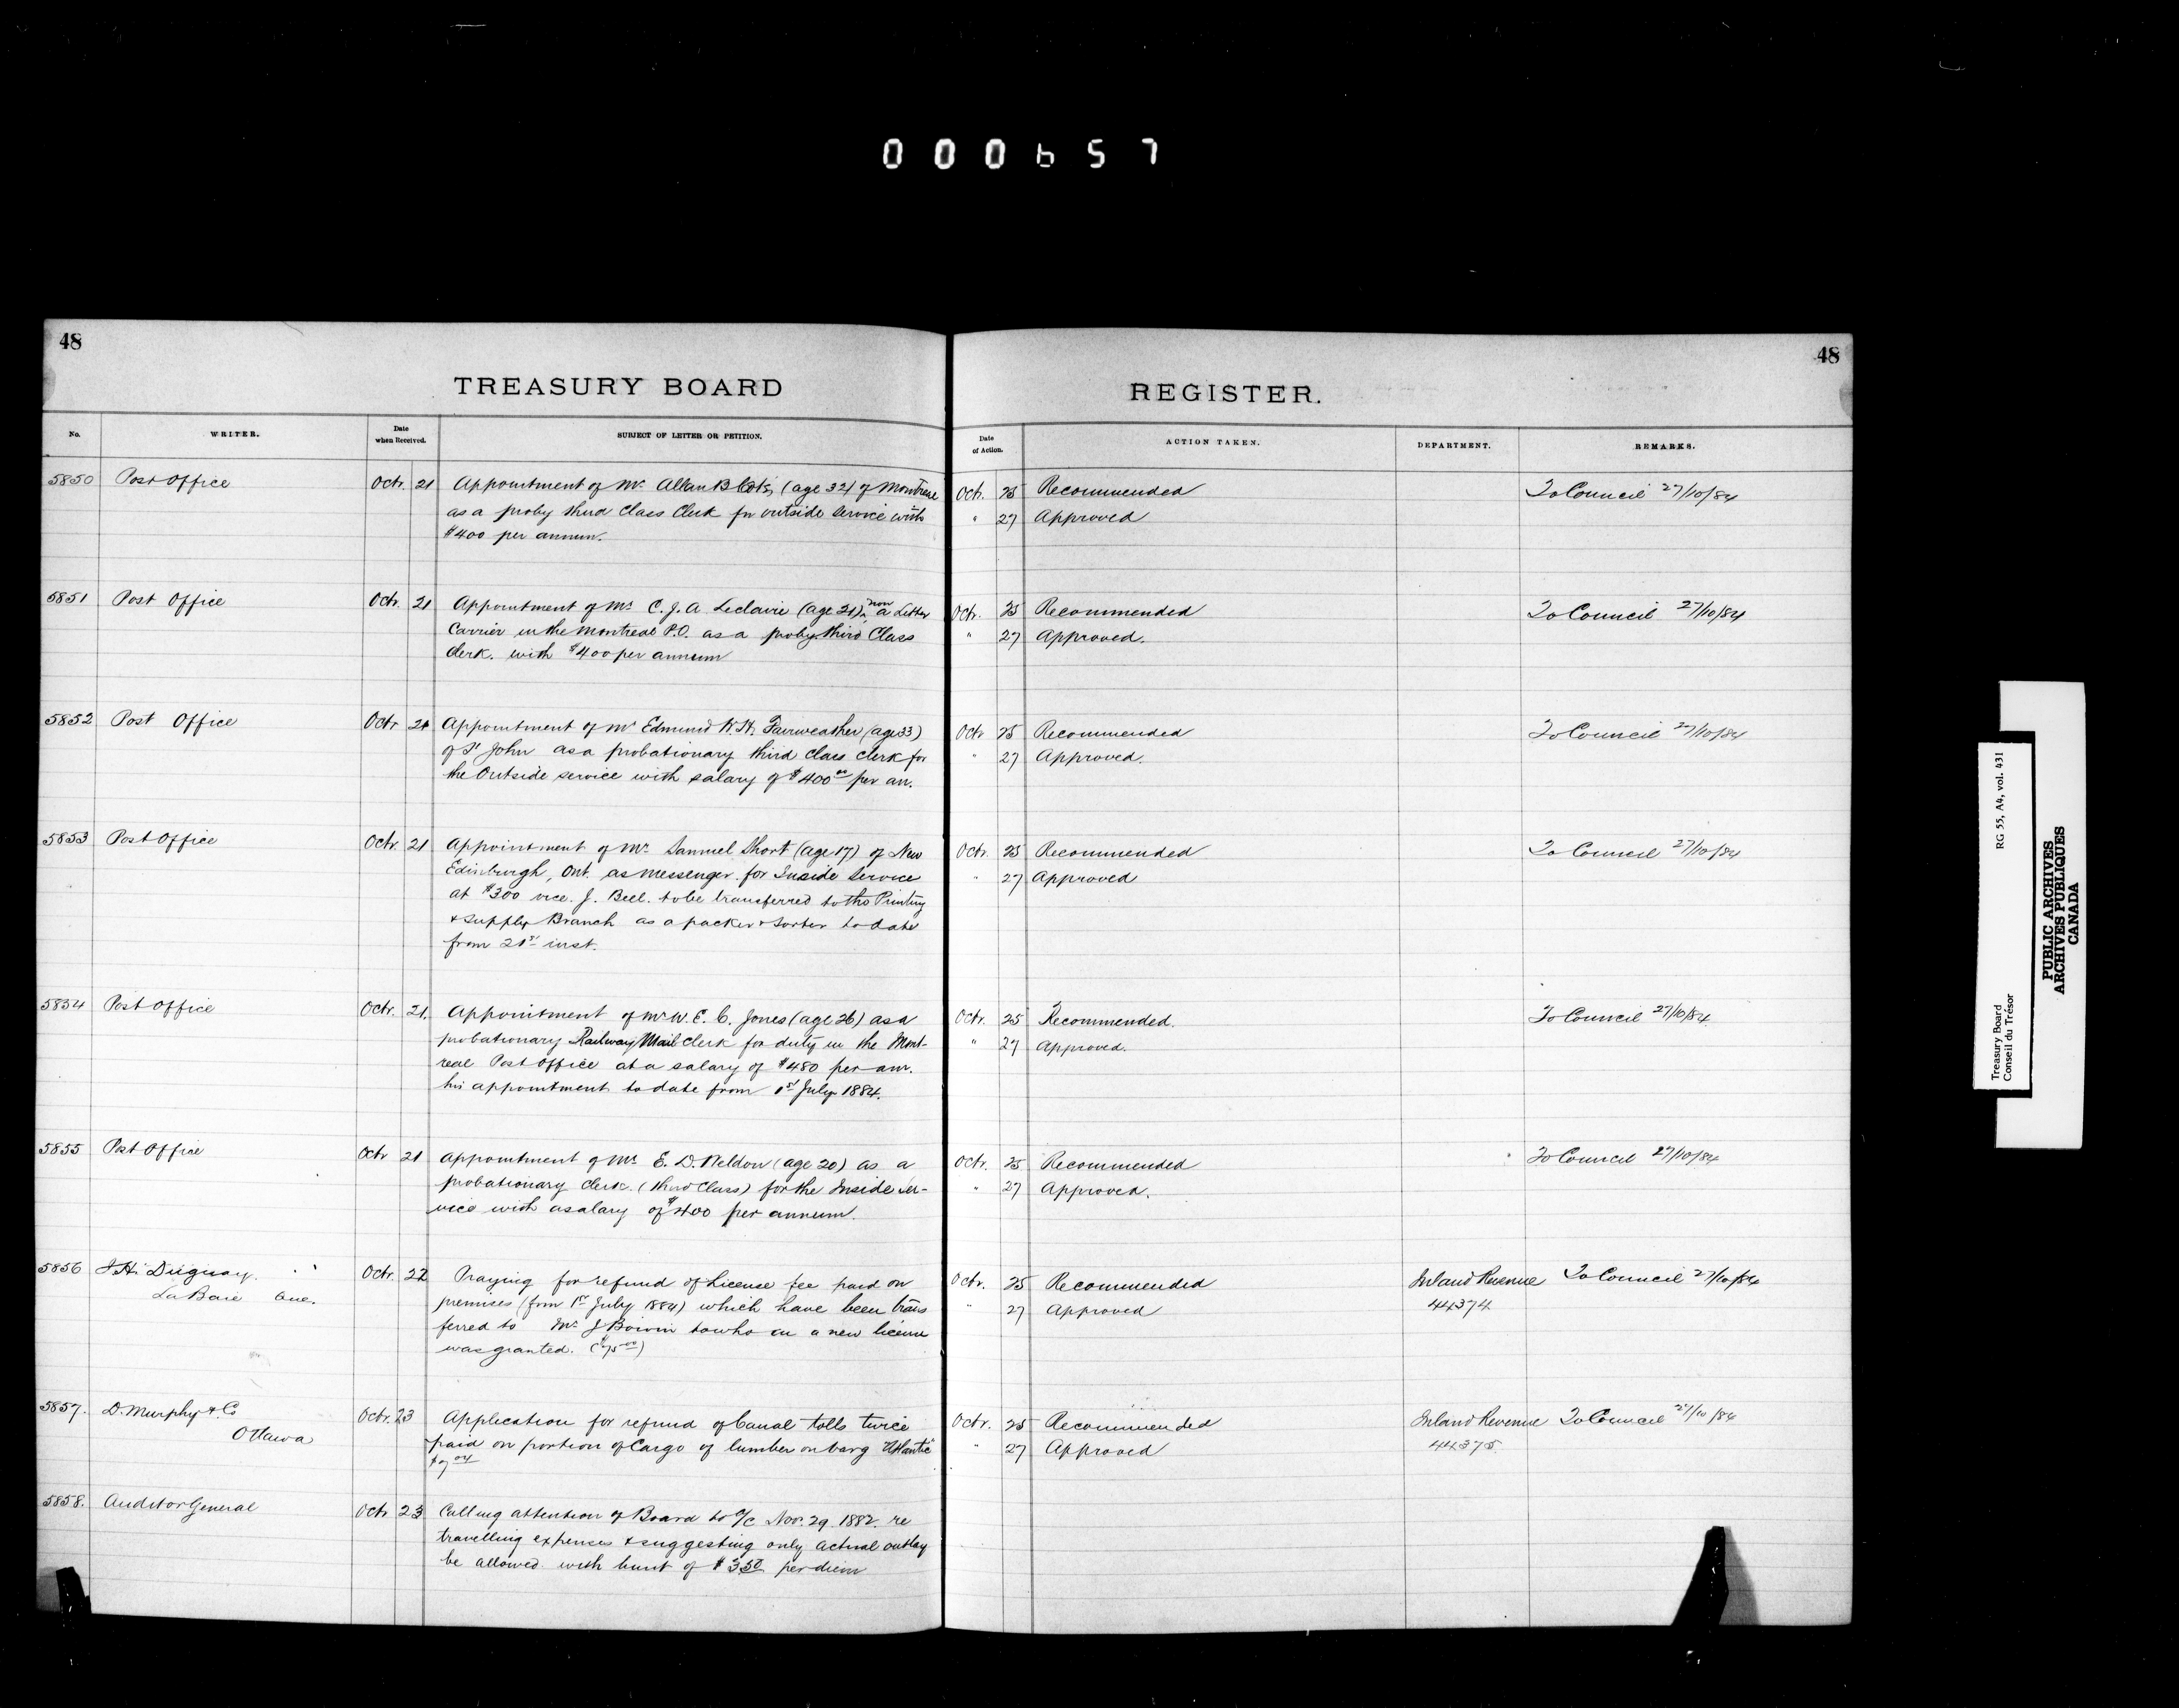 000657
48
48
TREASURY BOARD
REGISTER.
No.
WRITER.
Date when Received.
SUBJECT OF LETTER OR PETITION.
Date of Action.
ACTION TAKEN.
DEPARTMENT.
REMARKS.
5850 Post Office Octr. 21 Appointment of Mr. Allan B (age 32) of Montreal
as a proby third Class Clerk for outside Service with
$400 per annum.
Octr. 25 Recommended To Council 27/10/84
" 27 Approved
5851 Post Office Octr. 21 Appointment of Mr. C. J. A. Leclaire (age 21), now a Letter
Carrier in the Montreal P.O. as a proby third Class
Clerk. with $400 per annum
Octr. 25 Recommended To Council 27/10/84
" 27 Approved.
5852 Post Office Octr 21 Appointment of Mr Edmund W. H. Fairweather (age 33)
of St John as a probationary third class clerk for
the Outside service with salary of $400 00 per an.
Octr 25 Recommended To Council 27/10/84
" 27 Approved.
5853 Post Office Octr. 21 Appointment of Mr. Samuel Short (age 17) of New
Edinburgh, Ont. as messenger for Inside Service
at $300 vice. J. Bell. to be transferred to the Printing
& supply Branch as a packer & sorter to date
from 21st inst.
Octr. 25 Recommended To Council 27/10/84
" 27 Approved
5854 Post Office Octr. 21. Appointment of Mr W. E. C. Jones (age 26) as a
probationary Railway Mail Clerk for duty in the Mont-
real Post Office at a salary of $480 per an.
his appointment to date from 1st July 1884.
Octr. 25 Recommended. To Council 27/10/84
" 27 Approved.
5855 Post Office Octr 21 Appointment of Mr. E. D. Weldon (age 20) as a
probationary clerk. (third Class) for the Inside Ser-
vice with a salary of $400 per annum.
Octr. 25 Recommended To Council 27/10/84
" 27 Approved.
5856 J. H. Duguay. Octr. 22 Praying for refund of License fee paid on
La Baie Que. premises (from 1st July 1884) which have been trans
ferred to Mr. J Boivin to who an a new license
was granted. ($75 00)
Octr. 25 Recommended Inland Revenue To Council 27/10/84
" 27 Approved 44374
5857. D. Murphy & Co Octr. 23 Application for refund of Canal tolls twice
Ottawa paid on portion of Cargo of lumber on barg "Atlantic"
Octr. 25 Recommended Inland Revenue To Council 27/10/84
" 27 Approved 44375.
5858. Auditor General Octr 23 Calling attention of Board to O/C Nov. 29. 1882. re
travelling expenses & suggesting only actual outlay
be allowed with limit of $3.50 per diem
RG 55, A4, vol. 431
Treasury Board
Conseil du Trésor
PUBLIC ARCHIVES
ARCHIVES PUBLIQUES
CANADA